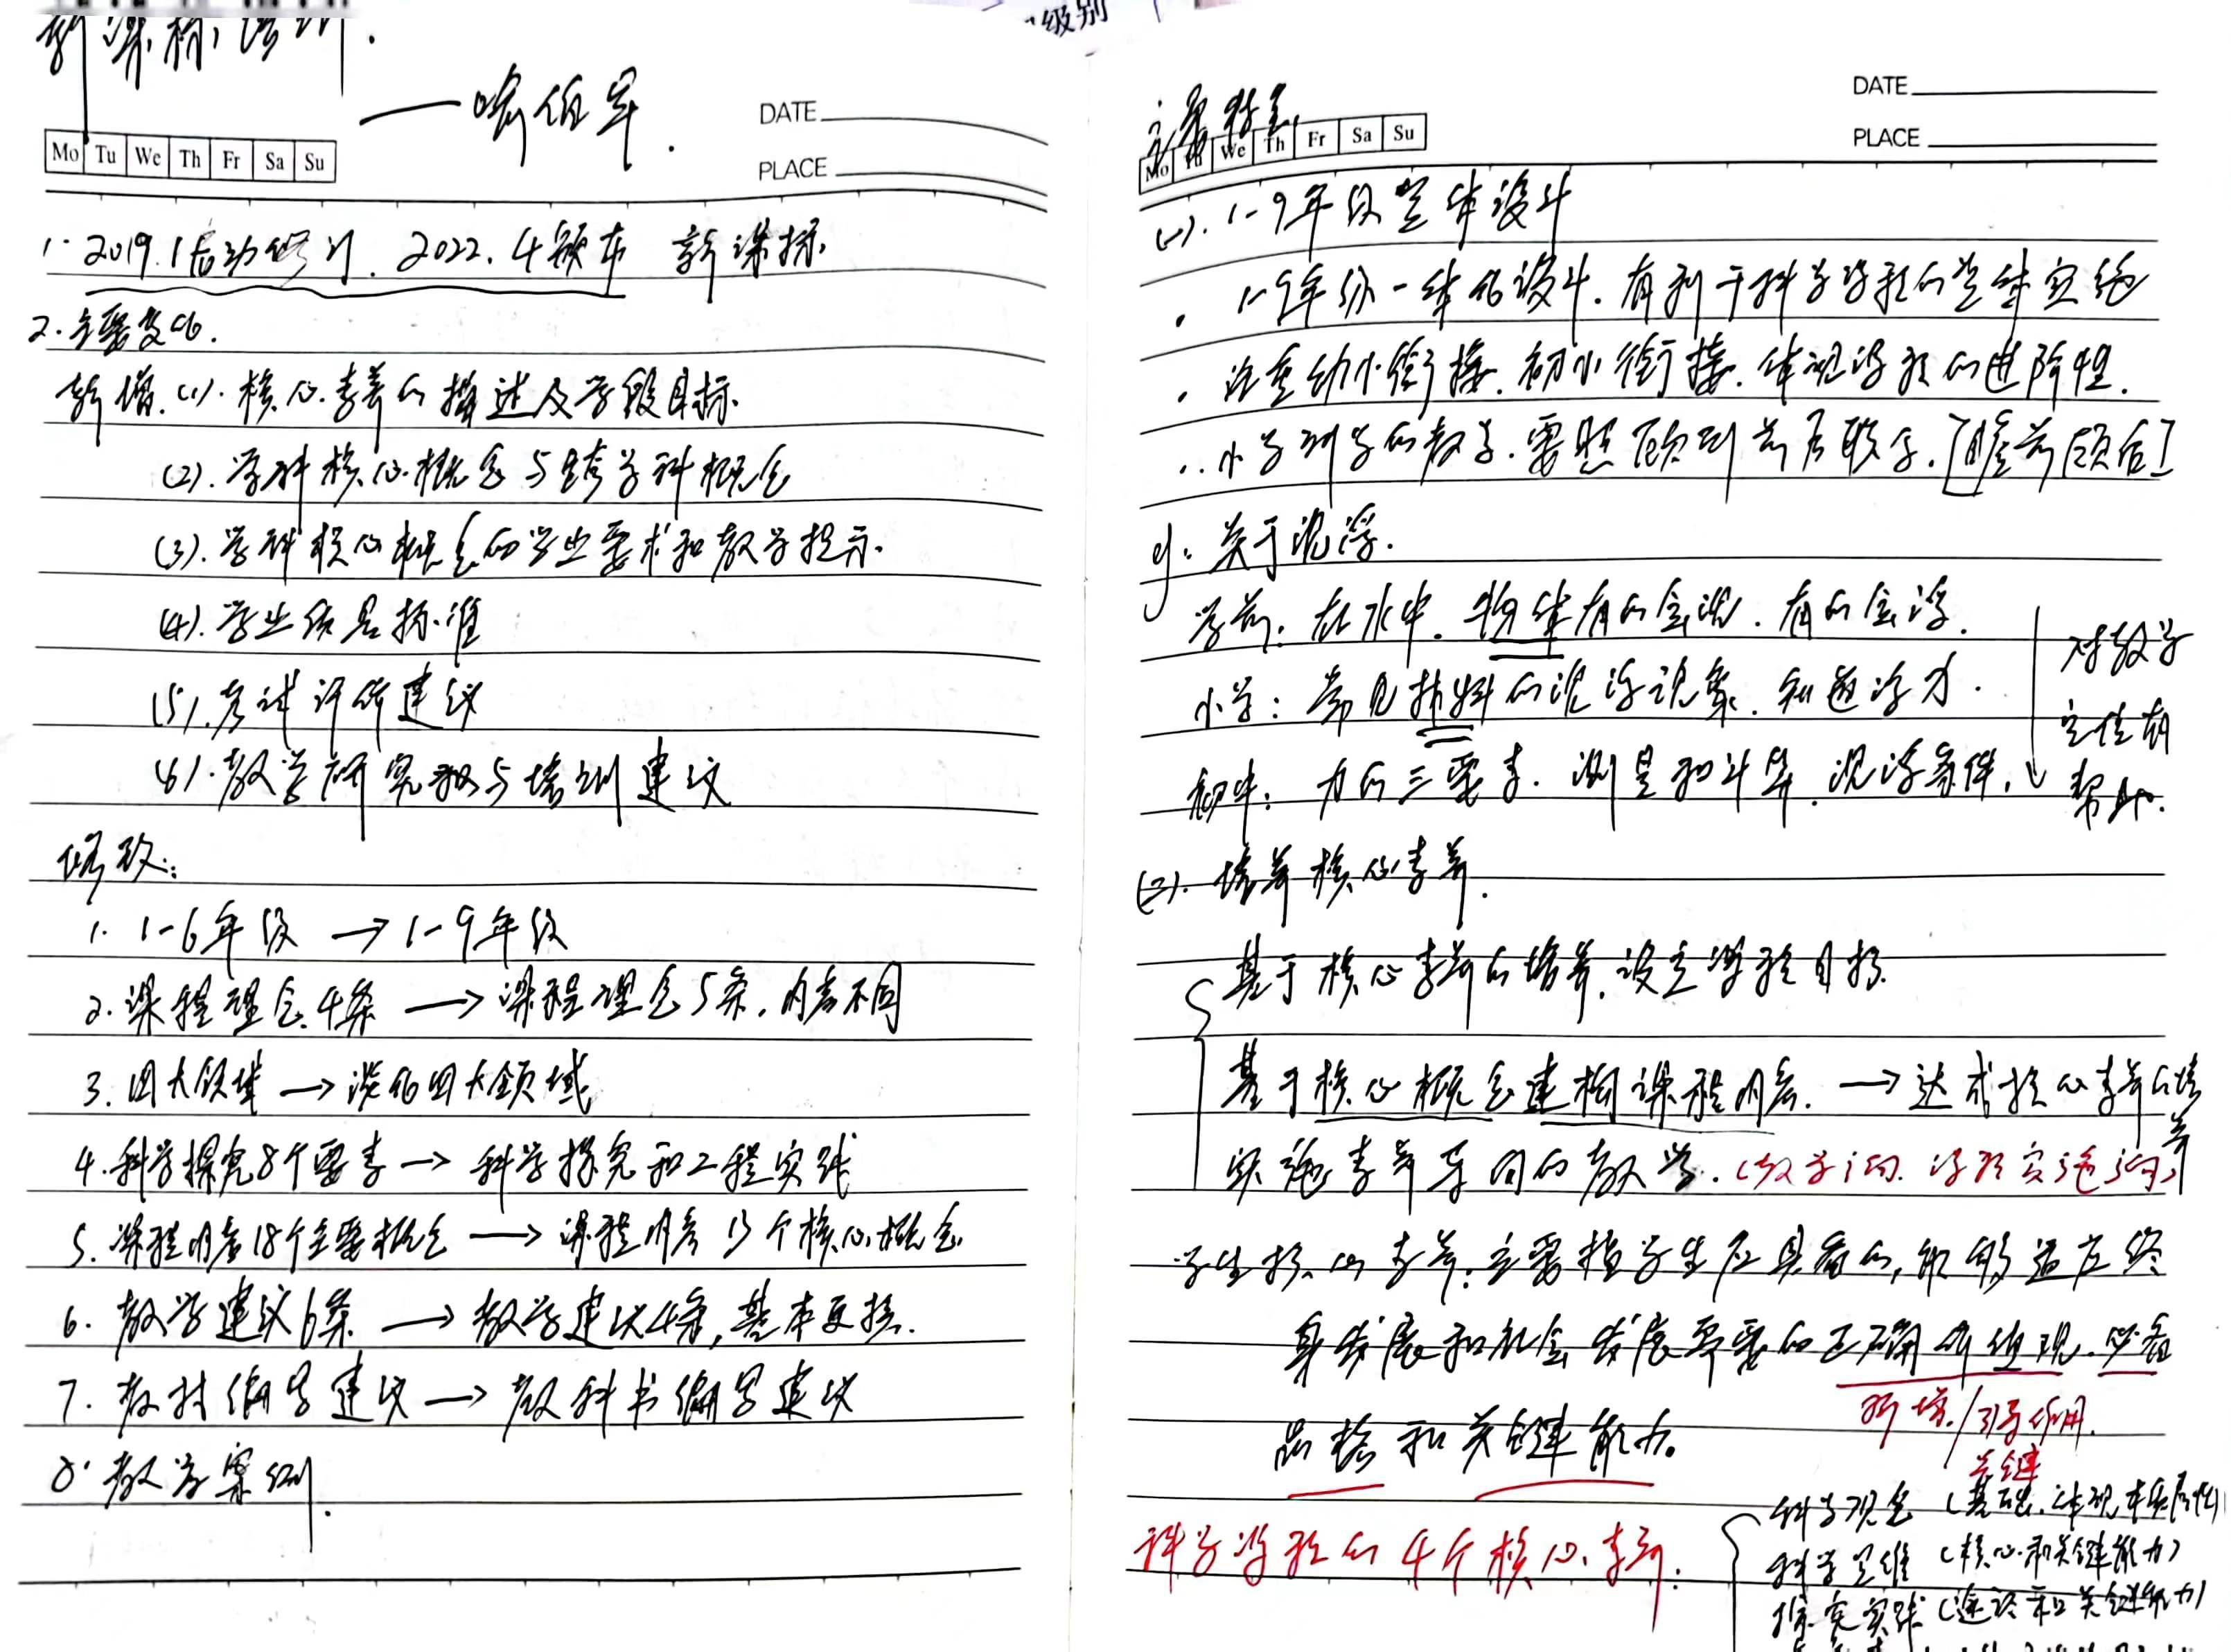 新课标培训.
——喻伯军.
DATE
PLACE
Mo Tu We Th Fr Sa Su
1. 2019.1启动修订. 2022.4颁布 新课标
2. 主要变化.
新增.(1).核心素养的描述及学段目标
(2).学科核心概念与跨学科概念
(3).学科核心概念的学业要求和教学提示.
(4).学业质量标准
(5).考试评价建议
(6).教学研究与培训建议
修改:
1. 1-6年级 → 1-9年级
2. 课程理念4条 → 课程理念5条,内容不同
3. 四大领域 → 淡化四大领域
4. 科学探究8个要素 → 科学探究和工程实践
5. 课程内容18个主要概念 → 课程内容13个核心概念
6. 教学建议6条 → 教学建议4条,基本更换.
7. 教材编写建议 → 教科书编写建议
8. 教学案例.
级别
DATE
PLACE
主要特点
Mo Tu We Th Fr Sa Su
(一). 1-9年级整体设计
. 1-9年级一体化设计. 有利于科学课程的整体实施
. 注重幼小衔接. 初小衔接. 体现课程的进阶性.
∴小学科学的教学.要照顾到前后联系.[瞻前顾后]
例: 关于沉浮.
学前: 在水中. 物体有的会沉. 有的会浮.
小学: 常见材料的沉浮现象. 知道浮力.
初中: 力的三要素. 测量和计算. 沉浮条件.
对教学
定位有
帮助.
(二). 培养核心素养.
基于核心素养的培养,设立课程目标.
基于核心概念建构课程内容. → 达成核心素养的培养
实施素养导向的教学. (教学询. 课程实施询)
学生核心素养: 主要指学生应具备的, 能够适应终
身发展和社会发展需要的正确价值观. 必备
新增/引导作用.
品格和关键能力.
关键
科学课程的4个核心素养:
科学观念 (基础. 体现本质属性)
科学思维 (核心和关键能力)
探究实践 (途径和关键能力)